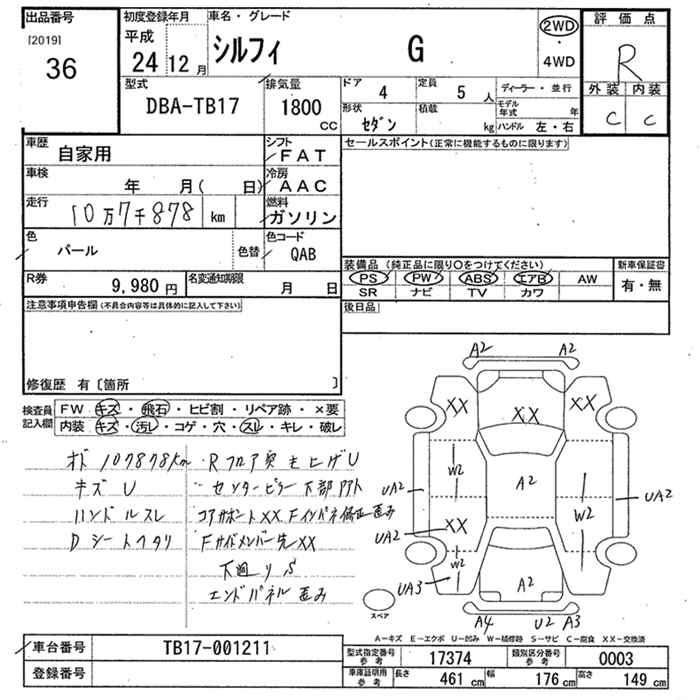 出品番号
[2019]
36
初度登録年月
平成
24 12 月
車名・グレード
シルフィ G
2WD
・
4WD
評価点
R
外装 内装
C C
型式
DBA-TB17
排気量
1800
CC
ドア 4
定員 5 人
形状
セダン
積載 kg
ディーラー・並行
モデル年式 年
ハンドル 左・右
車歴
自家用
シフト
FAT
車検
年 月( 日)
冷房
AAC
走行
10万7千878 km
燃料
ガソリン
色
パール
色替
色コード
QAB
R券
9,980 円
名変通知期限
月 日
セールスポイント(正常に機能するものに限ります)
装備品(純正品に限り○をつけてください)
PS PW ABS エアB AW
SR ナビ TV カワ
新車保証書
有・無
後日品
注意事項申告欄(不具合内容等は具体的に記入して下さい)
修復歴 有〔箇所 〕
検査員記入欄
FW キズ・飛石・ヒビ割・リペア跡・×要
内装 キズ・汚レ・コゲ・穴・スレ・キレ・破レ
オド 107878km
キズ U
ハンドルスレ
Dシートヘタリ
・Rフロア 突き上げU
センターピラー下部
コアサポートXX Fインパネ修正 歪み
Fサイドメンバー先XX
下廻りS
エンドパネル歪み
A2 A2
XX XX XX
W2
A2
UA2 UA2
W2
XX
UA2
W2
UA3
A2
A4 U2 A3
スペア
A-キズ E-エクボ U-凹み W-補修跡 S-サビ C-腐食 XX-交換済
車台番号
TB17-001211
登録番号
型式指定番号 参考
17374
類別区分番号 参考
0003
車庫証明用 参考
長さ 461 cm
幅 176 cm
高さ 149 cm